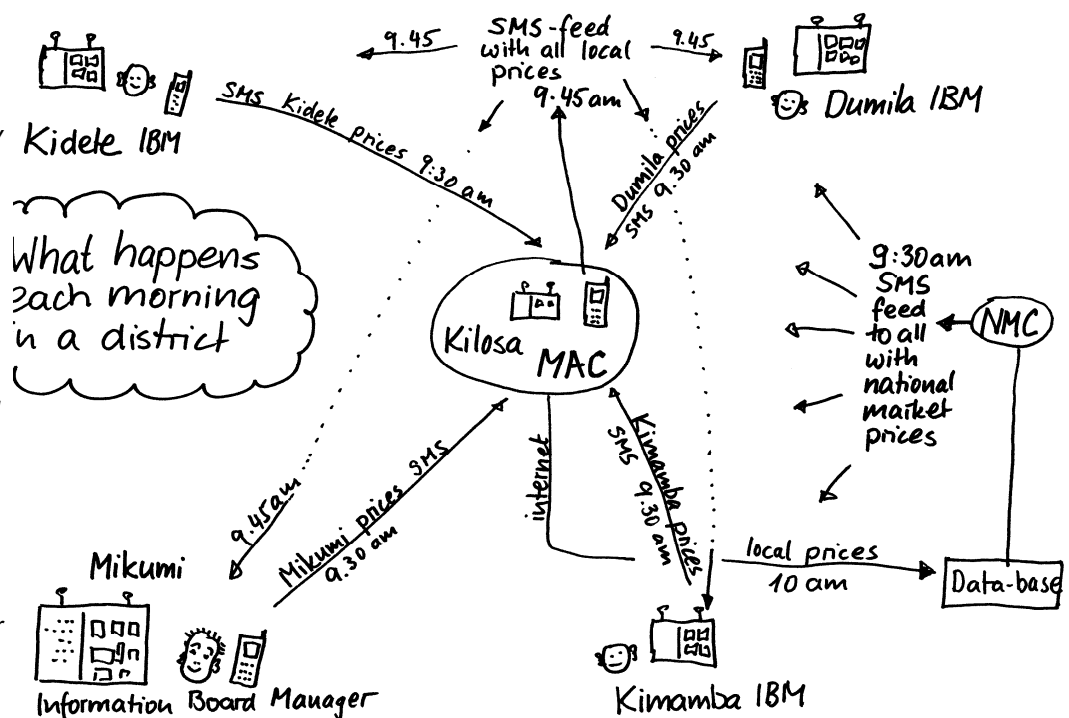 SMS-feed
with all local
prices
9.45am
9.45
9.45
Kidete IBM
SMS Kidete prices 9:30 am
Dumila IBM
Dumila prices
SMS 9.30 am
What happens
each morning
in a district
Kilosa
MAC
9:30am
SMS
feed
to all
with
national
market
prices
NMC
9.45am
Mikumi prices SMS
9.30 am
internet
Kimamba prices
SMS 9.30 am
local prices
10 am
Data-base
Mikumi
Information Board Manager
Kimamba IBM